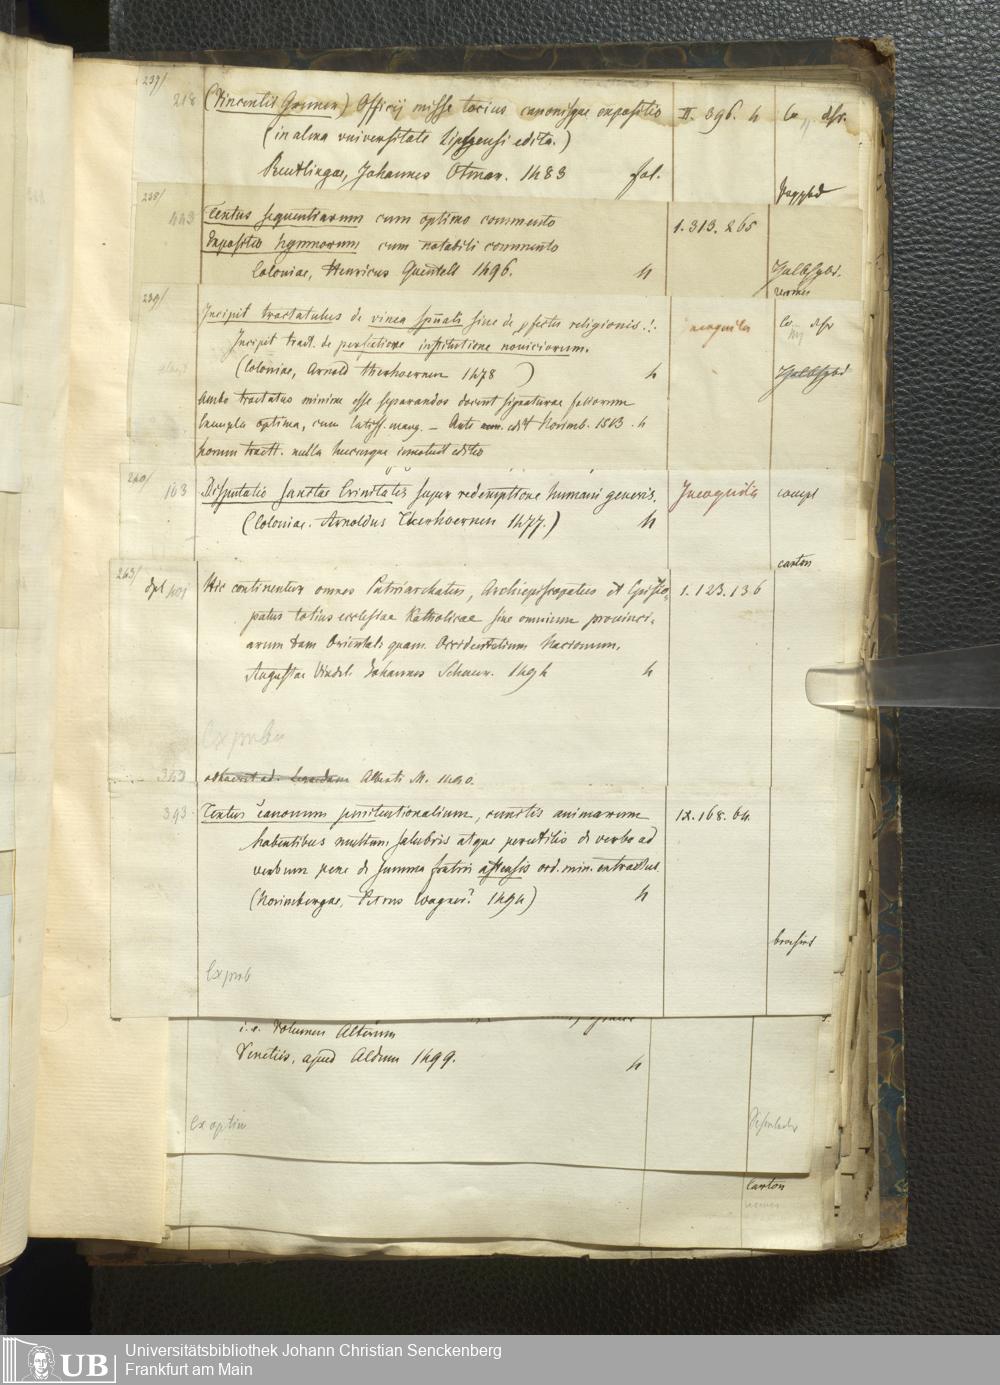 237/
218 (Vincentii Gruner) Officij misse tocius canonisque expositio II. 396. 4
(in alma universitate Lipszensi edita.)
Reutlingae, Johannes Otmar. 1483 fol.
Pappbd
238/
443 Textus sequentiarum cum optimo commento 1.313.265
Expositio hymnorum cum notabili commento
Coloniae, Henricus Quentell 1496. 4 Halbfzbd.
239/
Incipit tractatulus de vinea spũali sive de pfectu religionis incognita
Incipit tract. de perfectione institutione noviciorum.
(Coloniae, Arnold therhoernen 1478 ) 4 Halbfzbd
Ambo tractatus minime esse separandos docent signaturae foliorum
Exempla optima, cum latiss. marg. – Ante edit Norimb. 1513. 4
horum tractt. nulla hucusque innotuit editio
240/
103 Disputatio sanctae Trinitatis super redemptione humani generis. Incognita compl
(Coloniae. Arnoldus Therhoernen 1477.) 4
carton
243/
dpl 101 Hic continentur omnes Patriarchatus, Archiepiscopatus et Episco- 1.123.136
patus totius ecclesiae Katholicae sive omnium provinci-
arum tam Orientali quam Occidentalium Nacionum.
Augustae Vindel. Johannes Schaur. 1494 4
Ex pulcr
343 adhaeret ad. Alberti M. 1490.
393 Textus canonum penitentionalium, cunctis animarum IX.168.64.
habentibus multum salubris atque perutilis de verbo ad
verbum pene de summa fratris astensis ord. min. extractus
(Norimbergae, Petrus Wagner? 1494) 4
brochirt
Ex pulc
i. e. Volumen Alterum
Venetiis, apud Aldum 1499. 4
Ex optim
Carton
Universitätsbibliothek Johann Christian Senckenberg
UB Frankfurt am Main